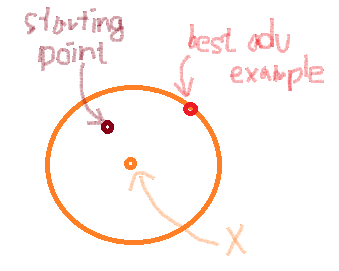 starting
point
best adv
example
X